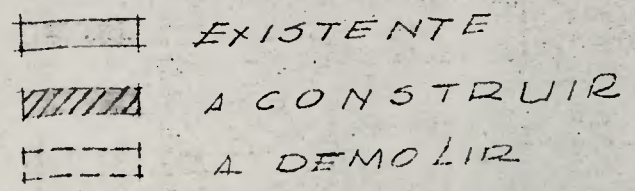 EXISTENTE
A CONSTRUIR
A DEMOLIR